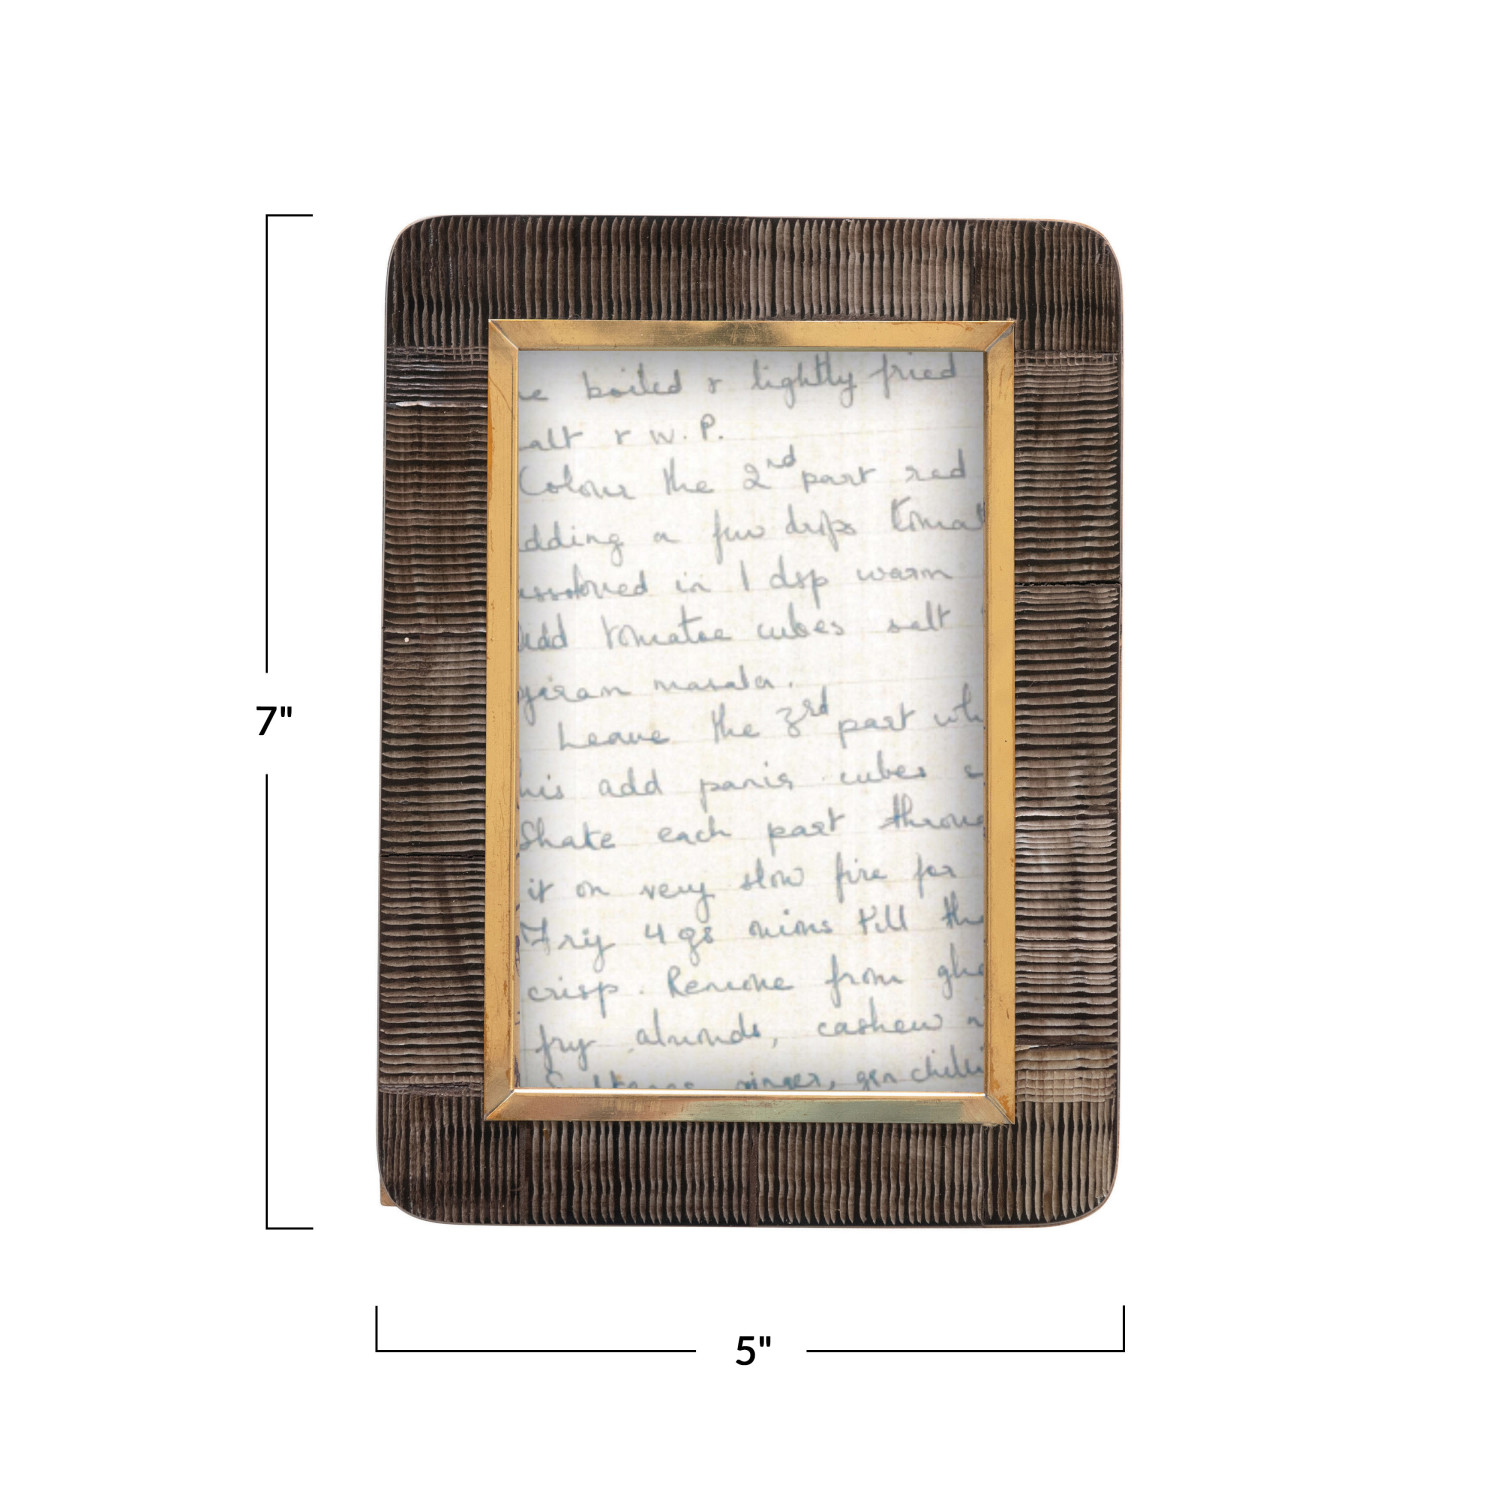 boiled & lightly fried
alt & W.P.
Colour the 2nd part red
dding a few drps tomat
issolved in 1 dsp warm
Add tomatoe cubes salt
garam masala.
Leave the 3rd part whi
his add panir cubes s
Shake each part throug
it on very slow fire for
Fry 4 gs mins till the
crisp. Remove from ghe
fry almonds, cashew n
ginger, grn chilli
7"
5"